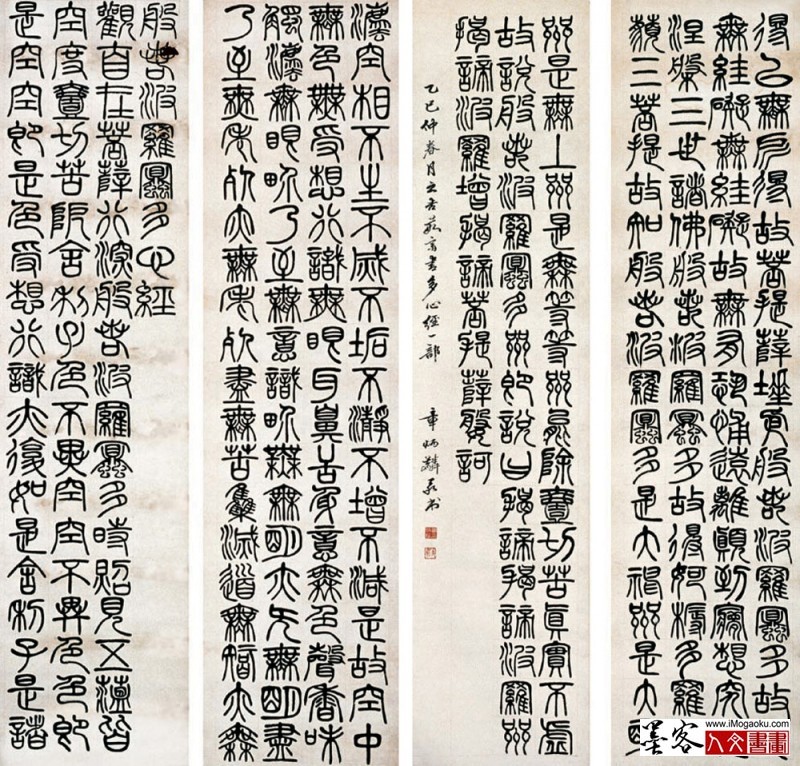 般若波羅蜜多心經
觀自在菩薩行深般若波羅蜜多時照見五蘊皆
空度壹切苦厄舍利子色不異空空不異色色即
是空空即是色受想行識亦復如是舍利子是諸
灋空相不生不滅不垢不瀞不增不減是故空中
無色無受想行識無眼耳鼻舌身意無色聲香味
觸灋無眼界乃至無意識界無無明亦无無明盡
乃至無老死亦無老死盡無苦集滅道無智亦無
得以無所得故菩提薩埵依般若波羅蜜多故
無罣礙無罣礙故無有恐怖遠離顛倒夢想究
涅槃三世諸佛依般若波羅蜜多故得阿耨多羅
藐三菩提故知般若波羅蜜多是大神咒是大明
咒是無上咒是無等等咒能除壹切苦真實不虛
故說般若波羅蜜多咒即說曰揭諦揭諦波羅
揭諦波羅增揭諦菩提薩婆訶
乙巳仲春月之吉 書多心經一部 章炳麟
墨客
www.iMogaoku.com
人文書畫